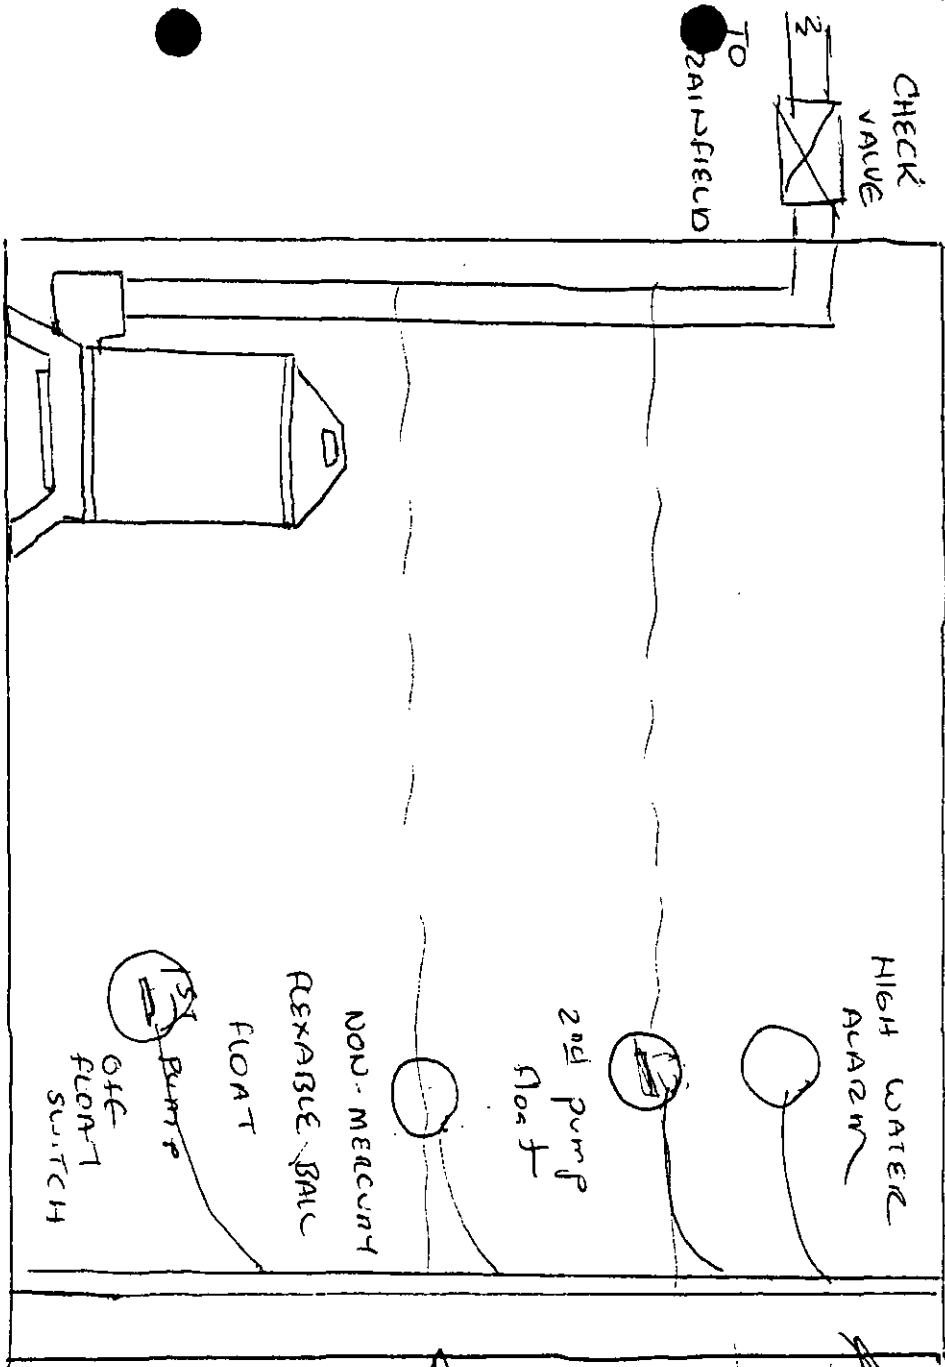 CHECK
VALVE
TO
RAINFIELD
HIGH WATER
ALARM
2nd pump
float
NON-MERCURY
FLEXABLE BALL
FLOAT
1ST
PUMP
OFF
FLOAT
SWITCH